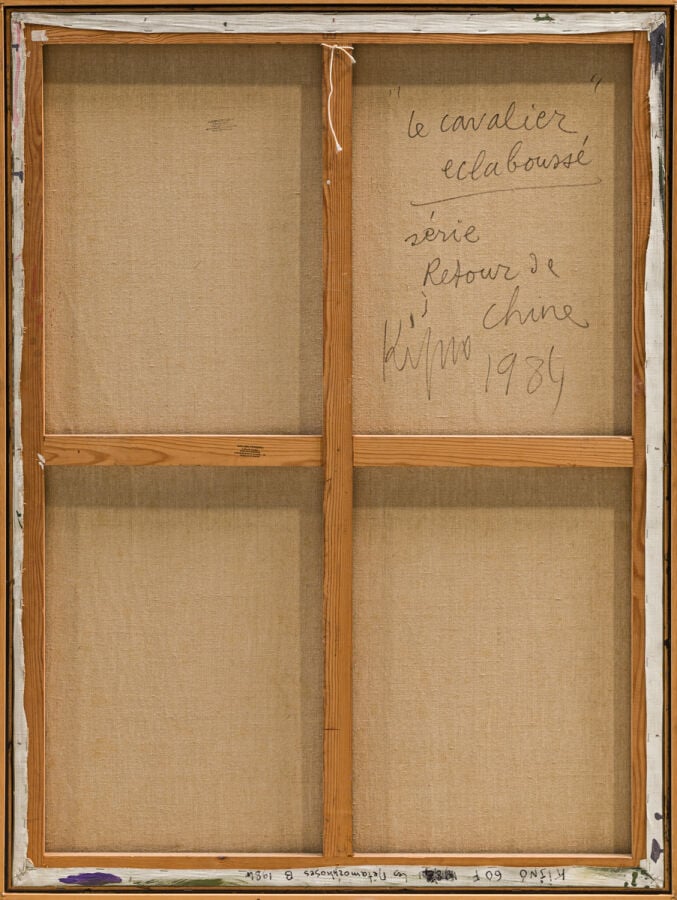 "le cavalier"
eclaboussé
série
Retour de
chine
Kijno 1984
KIJNO 60 F 1984 les Métamorphoses B 1984